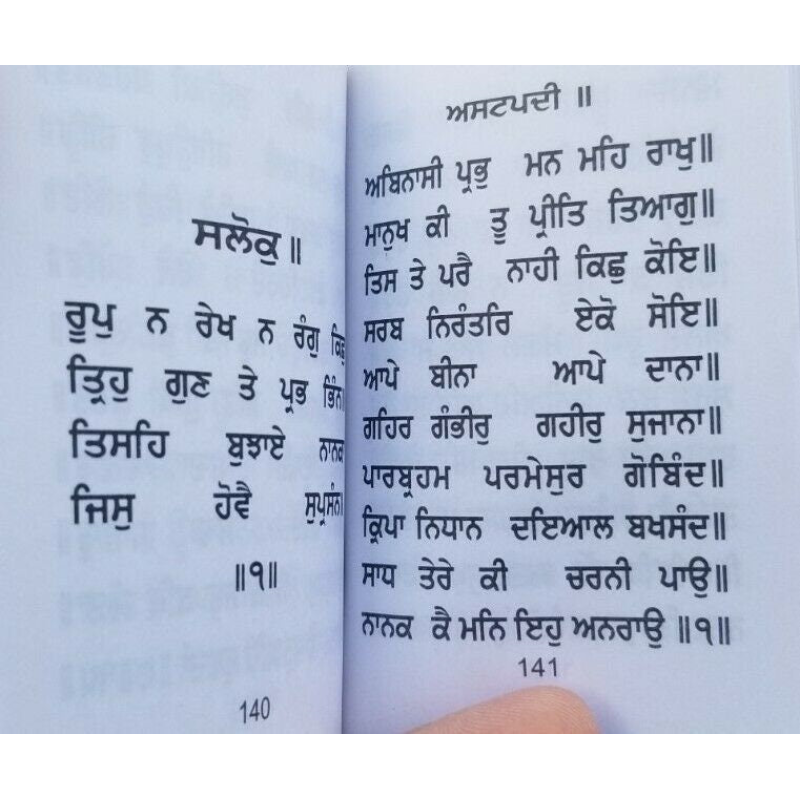 ਸਲੋਕੁ ॥
ਰੂਪੁ ਨ ਰੇਖ ਨ ਰੰਗੁ ਕਿਛੁ
ਤ੍ਰਿਹੁ ਗੁਣ ਤੇ ਪ੍ਰਭ ਭਿੰਨ॥
ਤਿਸਹਿ ਬੁਝਾਏ ਨਾਨਕਾ
ਜਿਸੁ ਹੋਵੈ ਸੁਪ੍ਰਸੰਨ॥
॥੧॥
140
ਅਸਟਪਦੀ ॥
ਅਬਿਨਾਸੀ ਪ੍ਰਭੁ ਮਨ ਮਹਿ ਰਾਖੁ॥
ਮਾਨੁਖ ਕੀ ਤੂ ਪ੍ਰੀਤਿ ਤਿਆਗੁ॥
ਤਿਸ ਤੇ ਪਰੈ ਨਾਹੀ ਕਿਛੁ ਕੋਇ॥
ਸਰਬ ਨਿਰੰਤਰਿ ਏਕੋ ਸੋਇ॥
ਆਪੇ ਬੀਨਾ ਆਪੇ ਦਾਨਾ॥
ਗਹਿਰ ਗੰਭੀਰੁ ਗਹੀਰੁ ਸੁਜਾਨਾ॥
ਪਾਰਬ੍ਰਹਮ ਪਰਮੇਸੁਰ ਗੋਬਿੰਦ॥
ਕ੍ਰਿਪਾ ਨਿਧਾਨ ਦਇਆਲ ਬਖਸੰਦ॥
ਸਾਧ ਤੇਰੇ ਕੀ ਚਰਨੀ ਪਾਉ॥
ਨਾਨਕ ਕੈ ਮਨਿ ਇਹੁ ਅਨਰਾਉ ॥੧॥
141